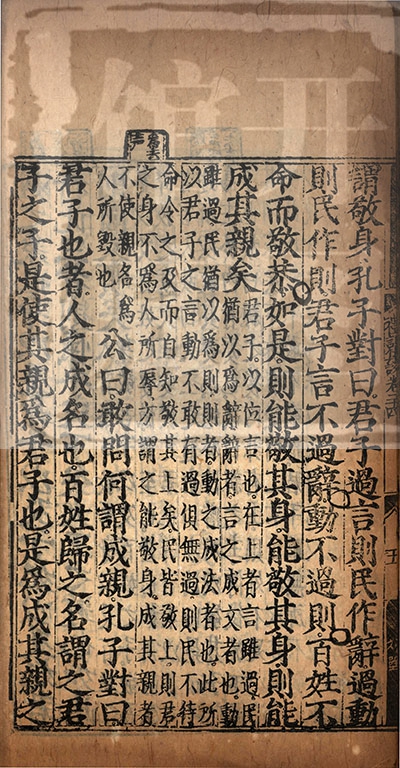 謂敬身孔子對曰君子過言則民作辭過動
則民作則君子言不過辭動不過則百姓不
命而敬恭如是則能敬其身能敬其身則能
成其親矣
君子以位言也在上者言雖過民
猶以爲辭辭者言之成文者也動
雖過民猶以爲則則者動之成法者也此所
以君子之言動不敢有過俱無過則民不待
命令之及而自知敬其上矣民皆敬上則君
之身不爲人所辱方謂之能敬身成其親者
不使親名爲
人所毀也
公曰敢問何謂成親孔子對曰
君子也者人之成名也百姓歸之名謂之君
子之子是使其親爲君子也是爲成其親之
五